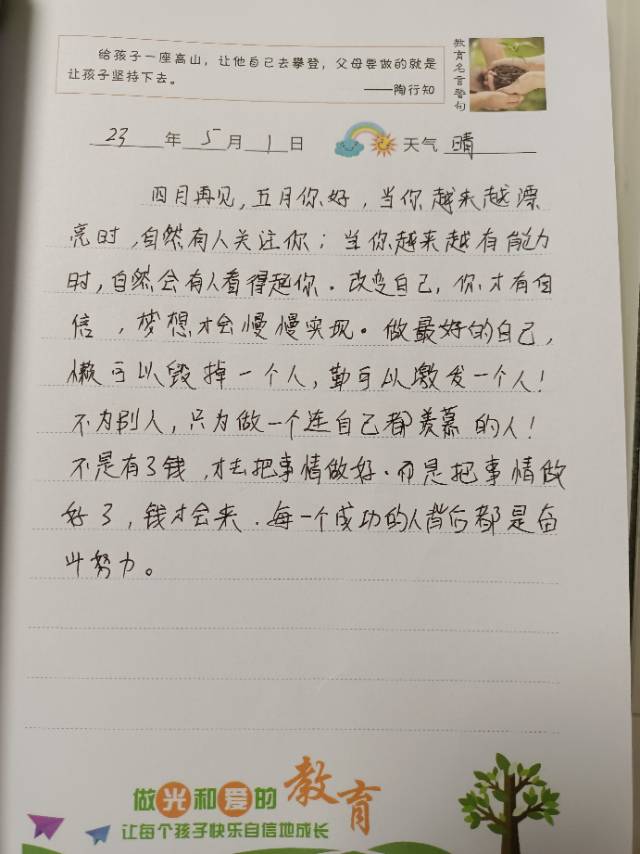 给孩子一座高山，让他自己去攀登，父母要做的就是
让孩子坚持下去。
——陶行知
教育名言警句
23 年 5 月 1 日 天气 晴
四月再见，五月你好，当你越来越漂
亮时，自然有人关注你；当你越来越有能力
时，自然会有人看得起你。改变自己，你才有自
信，梦想才会慢慢实现。做最好的自己，
懒可以毁掉一个人，勤可以激发一个人！
不为别人，只为做一个连自己都羡慕的人！
不是有了钱，才去把事情做好．而是把事情做
好了，钱才会来．每一个成功的人背后都是奋
斗努力。
做光和爱的教育
让每个孩子快乐自信地成长